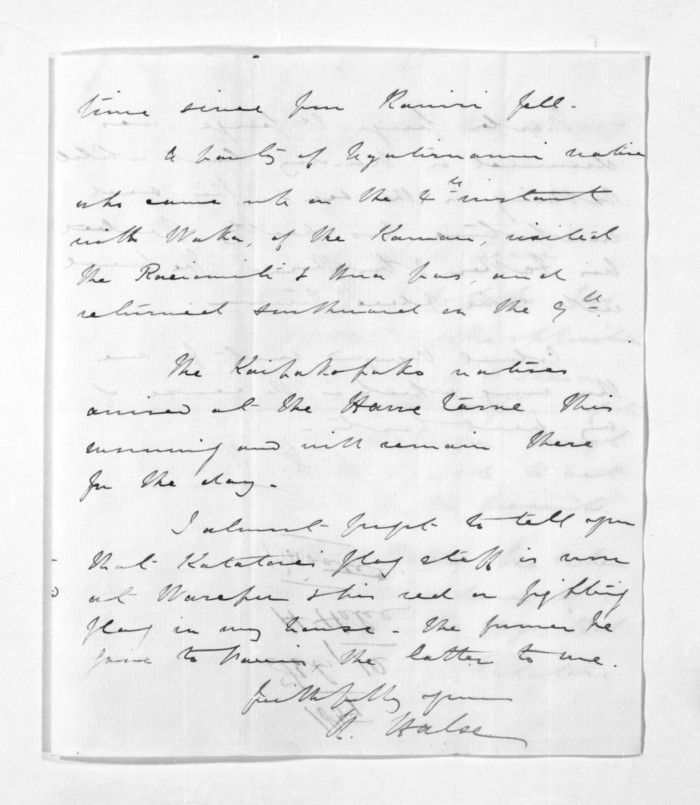 time since poor Rawiri fell.
A party of Ngatiruanui natives
who came up on the 4th instant
with Waka, of the Kaunau, visited
the & Hua pas, and
returned southward on the 9th.
The Kaipakopako natives
arrived at the Hare tame this
morning and will remain there
for the day.
I almost forgot to tell you
that Katatore's flag staff is now
at & his red or fighting
flag in my house. The former he
gave to the latter to me.
faithfully yours
H. Halse